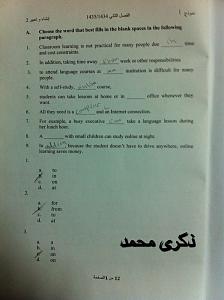 نموذج أ الفصل الثاني 1435/1434 إنشاء و تعبير 2
A. Choose the word that best fills in the blank spaces in the following
paragraph.
1. Classroom learning is not practical for many people due to time
and cost constraints.
2. In addition, taking time away from work or other responsibilities
3. to attend language courses at an institution is difficult for many
people.
4. With a self-study, online course,
5. students can take lessons at home or in office whenever they
want.
6. All they need is a computer and an Internet connection.
7. For example, a busy executive can take a language lesson during
her lunch hour.
8. A with small children can study online at night.
9. In addition because the student doesn't have to drive anywhere, online
learning saves money.
1.
a. to
b. in
c. on
d. at
2.
a. for
b. from
c. to
d. at
3.
a. a
b. in
c. an
d. on
ذكرى محمد